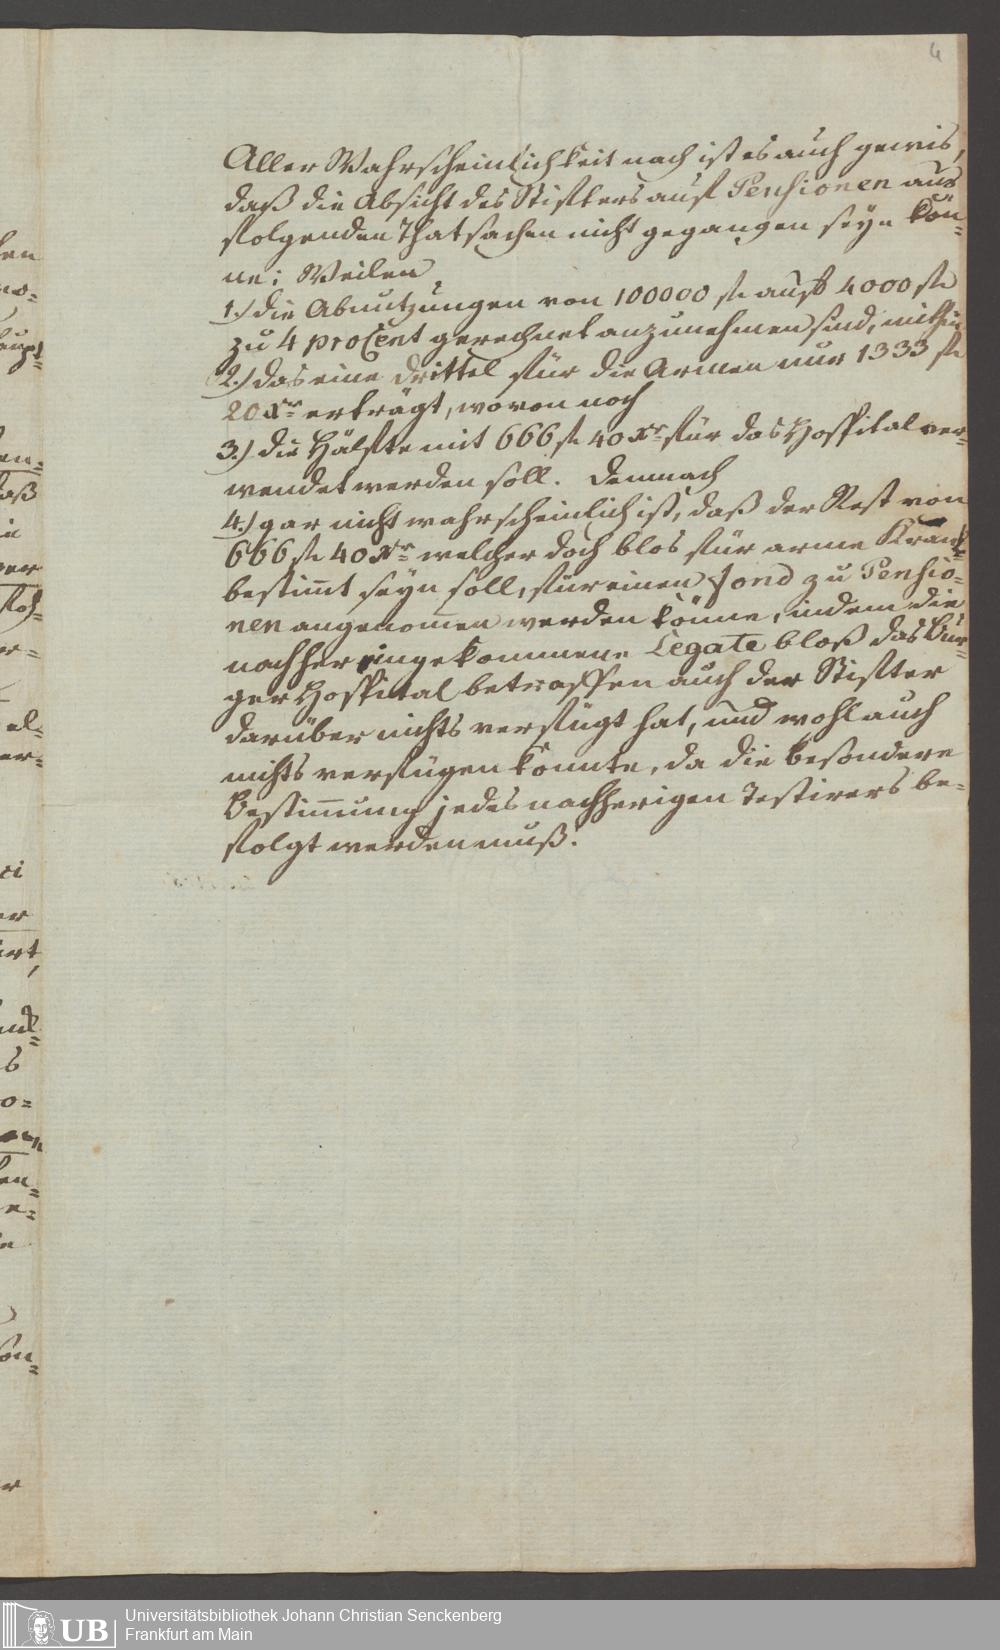 4
Aller Wahrscheinlichkeit nach ist es auch gewis,
daß die Absicht des Stifters auf Pensionen aus
folgenden Thatsachen nicht gegangen seyn kön=
ne; Weilen
1.) die Abnutzungen von 100000 fl. auf 4000 fl.
zu 4 proCent gerechnet anzunehmen sind, mithin
2.) das eine Drittel für die Armen nur 1333 fl.
20 Xr. erträgt, wovon noch
3.) die Hälfte mit 666 fl. 40 Xr. für das Hospital ver=
wendet werden soll. Demnach
4.) gar nicht wahrscheinlich ist, daß der Rest von
666 fl. 40 Xr. welcher doch blos für arme Krank
bestimt seyn soll, für einen fond zu Pensio=
nen angenommen werden könne, indem die
nachher eingekommene Legate bloß das Bür=
ger Hospital betreffen auch der Stifter
darüber nichts verfügt hat, und wohl auch
nichts verfügen konnte, da die besondere
Bestimmung jedes nachherigen Testirers be=
folgt werden muß.
UB
Universitätsbibliothek Johann Christian Senckenberg
Frankfurt am Main